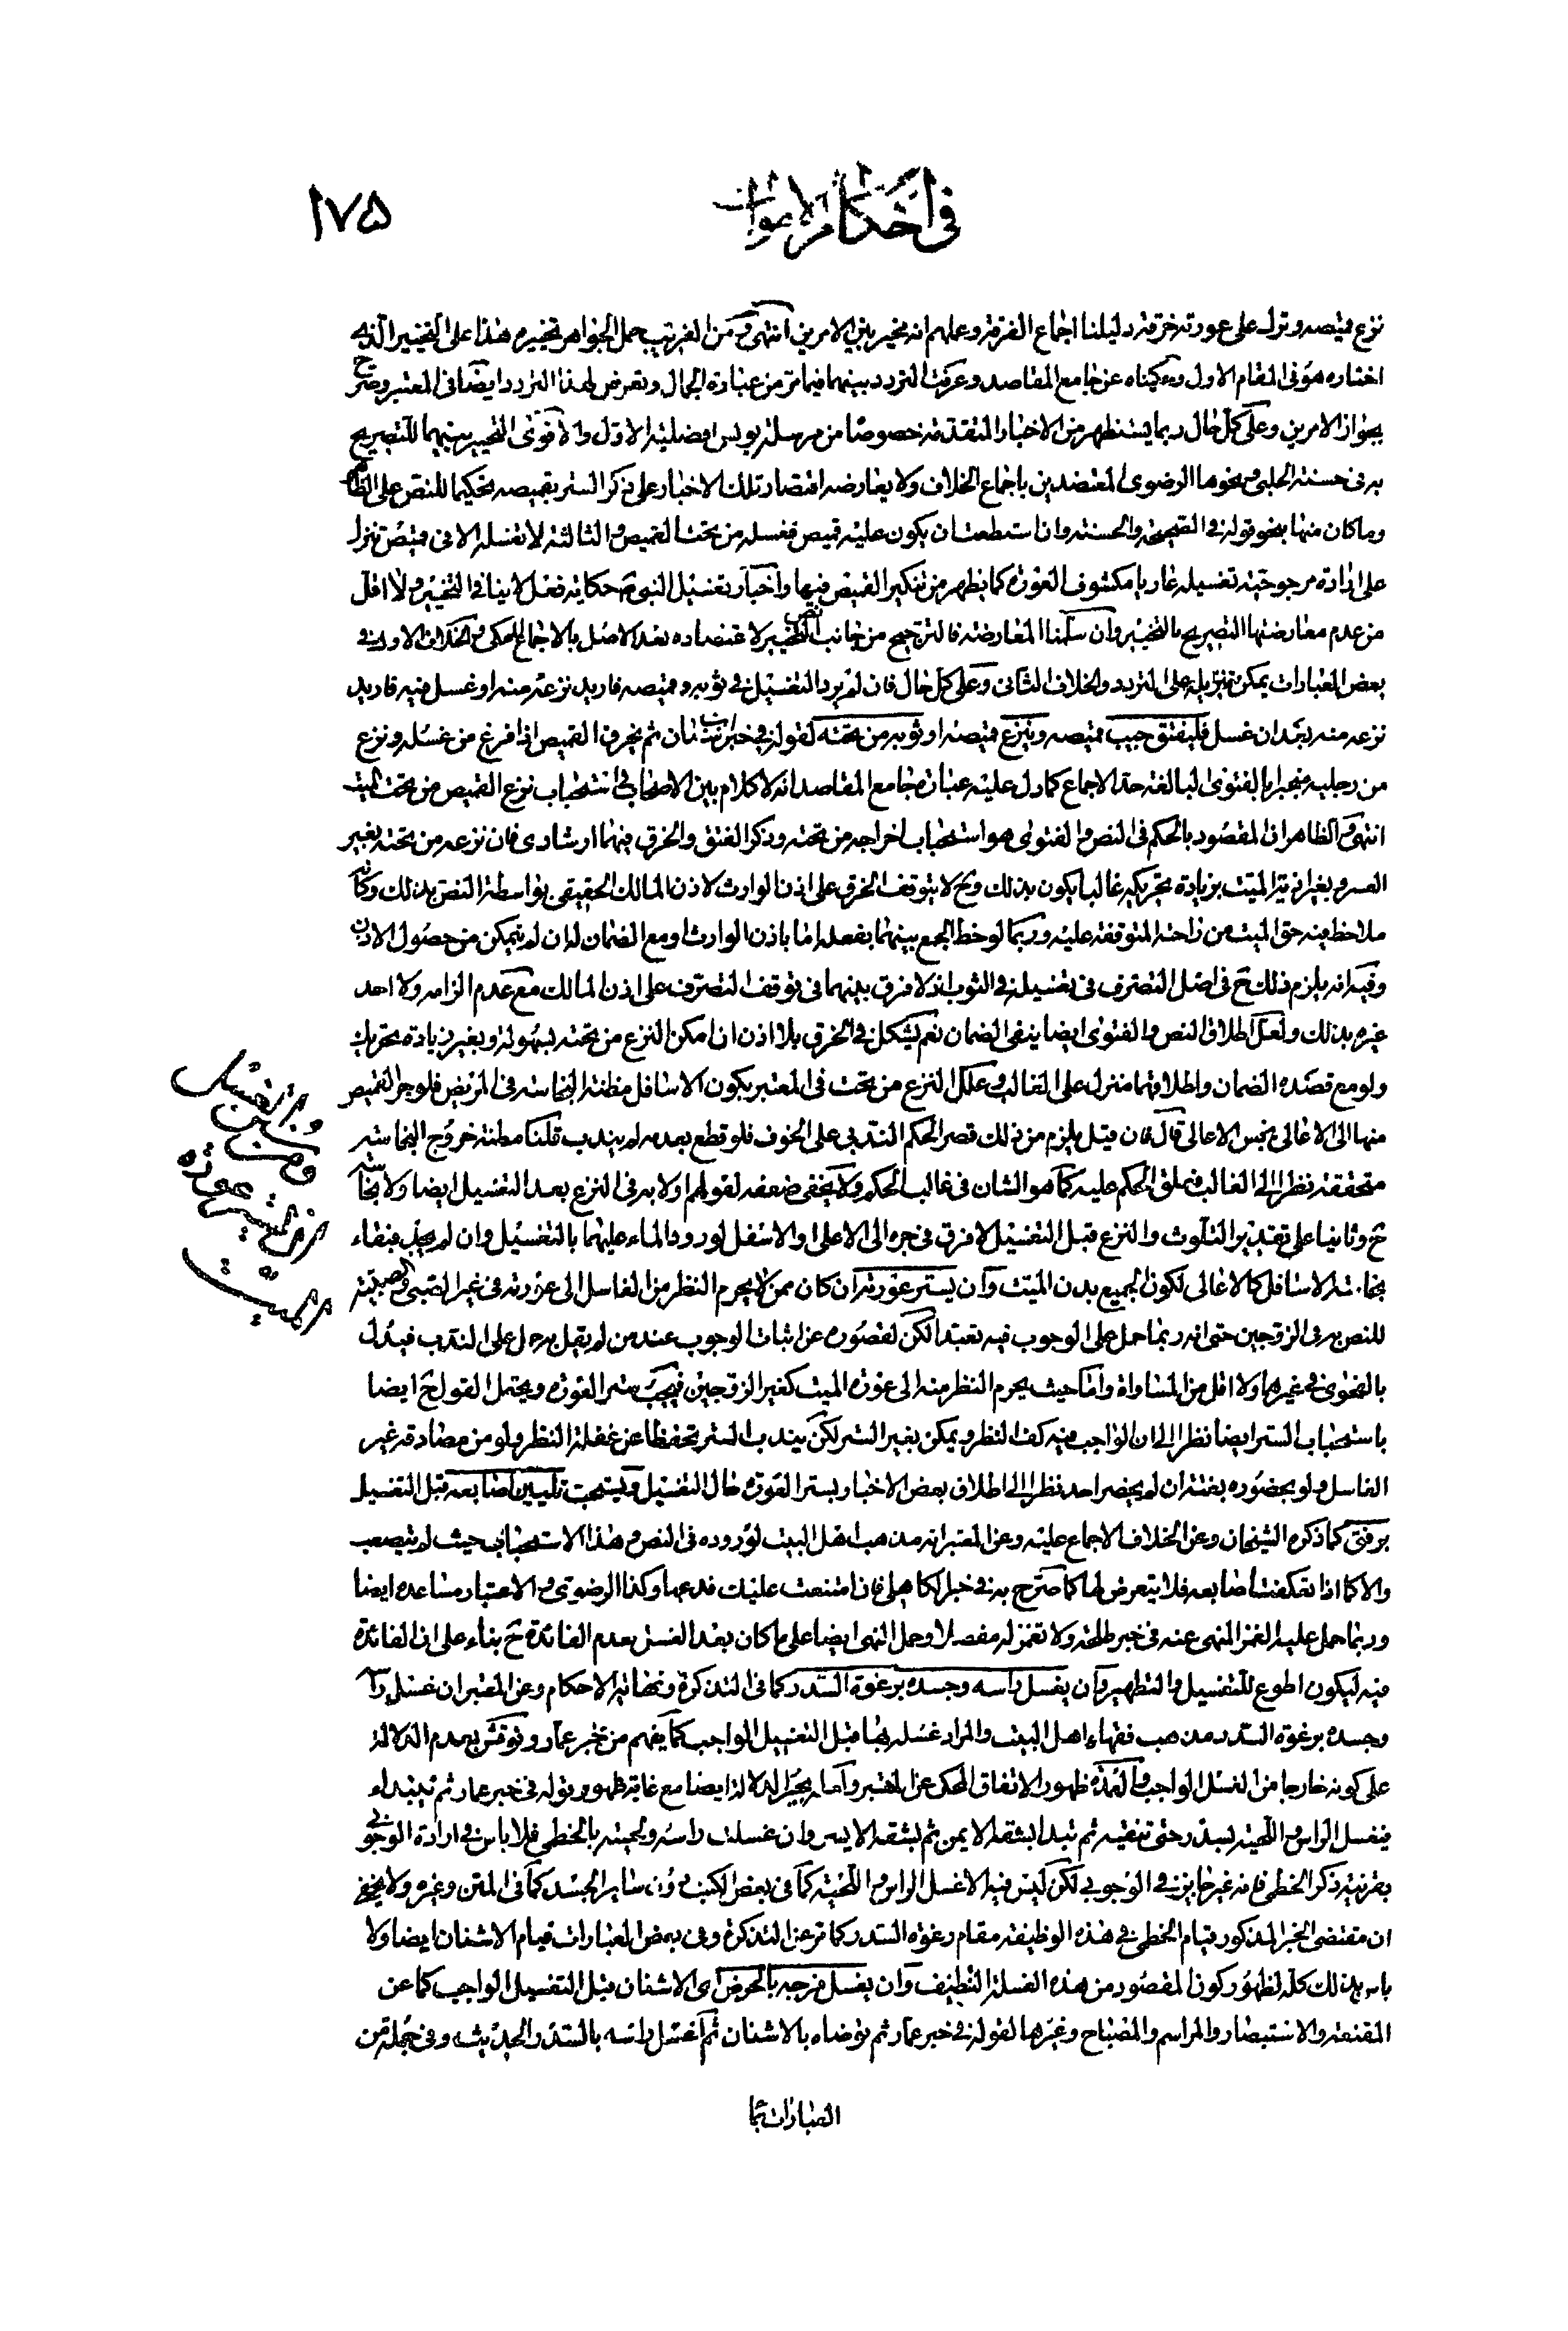 في احكام الاموات
١٧۵
نزع قميصه وترك على عورته خرقة دليلنا اجماع الفرقة وعملهم انه مخير بين الامرين انتهى ومن الغريب حمل الجواهر تخييرهم هذا على التخيير الذي
اختاره هو في المقام الاول وحكيناه عن جامع المقاصد وعرفت التردد بينهما فيما مر من عبارة الجمال وتعرض لهذا التردد ايضا في المعتبر وصرح
بجواز الامرين وعلى كل حال ربما يستظهر من الاخبار المتقدمة خصوصا من مرسلة يونس افضلية الاول والاقوى التخيير بينهما للتصريح
به في حسنة الحلبي ونحوها الرضوى المعتضدين باجماع الخلاف ولا يعارضه اقتصار تلك الاخبار على ذكر الستر بقميصه تحكيما للنص على الظاهر
وما كان منها بنحو قوله في الصحيحة والحسنة وان استطعت ان يكون عليه قميص فغسله من تحت القميص والثالثة لا تغسله الا في قميص تنزل
على ارادة مرجوحية تغسيله عاريا مكشوف العورة كما يظهر من تنكير القميص فيها واخبار تغسيل النبي ص حكاية فعل لا ينافي التخيير ولا اقل
من عدم معارضتها التصريح بالتخيير وان سلمنا المعارضة فالترجيح من جانب نص التخيير لاعتضاده بعد الاصل بالاجماع المحكي من الخلاف الاولين في
بعض العبارات يمكن تنزيله على التردد والخلاف الثاني وعلى كل حال فان لم يرد التغسيل في ثوبه وقميصه فاريد نزعه منه او غسل فيه فاريد
نزعه منه بعد ان غسل فليفتق جيب قميصه وينزع قميصه او ثوبه من تحته لقوله في خبر ابن سنان ثم يخرق القميص اذا فرغ من غسله ونزع
من رجليه منجبرا بالفتوى البالغة حد الاجماع كما دل عليه عبارة جامع المقاصد انه لا كلام بين الاصحاب في استحباب نزع القميص من تحت الميت
انتهى والظاهر ان المقصود بالحكم في النص والفتوى هو استحباب اخراجه من تحته وذكر الفتق والخرق فيهما ارشادى فان نزعه من تحته بغير
العسر وبغير اذية الميت بزيادة تحريكه غالبا يكون بذلك وح لا يتوقف الخرق على اذن الوارث لاذن المالك الحقيقي بواسطة النص بذلك وكانه
ملاحظ فيه حق الميت من راحته المتوقفة عليه وربما لوحظ الجمع بينهما بفعله اما باذن الوارث او مع الضمان له ان لم يتمكن من حصول الاذن
وفيه انه يلزم ذلك ح في اصل التصرف في تغسيله في الثوب اذ لا فرق بينهما في توقف التصرف على اذن المالك مع عدم الزامه ولا احد
غيره بذلك ولعل اطلاق النص والفتوى ايضا ينفي الضمان نعم يشكل في الخرق بلا اذن ان امكن النزع من تحته بسهولة وبغير زيادة تحريك
ولو مع قصده الضمان واطلاقهما منزل على الغالب وعلل النزع من تحت في المعتبر بكون الاسافل مظنة النجاسة في المريض فلو جر القميص
منها الى الاعالى نجس الاعالى قال فان قيل يلزم من ذلك قصر الحكم الندبي على الخوف فلو قطع بعدمه لم يندب قلنا مظنة خروج النجاسة
متحققة نظرا الى الغالب فيعلق الحكم عليه كما هو الشان في غالب الحكم ولا يخفى ضعفه لقولهم اولا به في النزع بعد التغسيل ايضا ولا نجاسة
ح وثانيا على تقدير التلوث والنزع قبل التغسيل لا فرق في جره الى الاعلى والاسفل لورود الماء عليهما بالتغسيل وان لم يجب فبقاء
نجاسة الاسافل كالاعالى لكون الجميع بدن الميت وان يستر عورته ان كان ممن لا يحرم النظر من الغاسل الى عورته في غير الصبي والصبية
للنص به في الزوجين حتى انه ربما حمل على الوجوب فيه تعبدا لكن لقصوره عن اثبات الوجوب عند من لم يقل به حمل على الندب فيدل
بالفحوى في غيرهما ولا اقل من المساواة واما حيث يحرم النظر منه الى عورة الميت كغير الزوجين فيجب ستر العورة ويحتمل القول ح ايضا
باستحباب الستر ايضا نظرا الى ان الواجب فيه كف النظر ويمكن بغير الستر لكن يندب الستر تحفظا عن غفلة النظر ولو من مضادقه غير
الغاسل ولو بحضوره بغتة ان لم يحضر احد نظرا الى اطلاق بعض الاخبار بستر العورة حال التغسيل ويستحب تليين اصابعه قبل التغسيل
برفق كما ذكره الشيخان وعن الخلاف الاجماع عليه وعن المعتبر انه مذهب اهل البيت لوروده في النص وهذا الاستحباب حيث لم يتصعب
والا كما اذا تعكفت اصابعه فلا يتعرض لها كما صرح به في خبر الكاهلي فان امتنعت عليك فدعها وكذا الرضوي والاعتبار مساعده ايضا
وربما حمل عليه الغمز المنهى عنه في خبر طلحة ولا تغمز له مفصلا وحمل النهى ايضا على ما كان بعد الغسل بعدم الفائدة ح بناء على ان الفائدة
فيه ليكون اطوع للتغسيل والتطهير وان يغسل راسه وجسده برغوة السدر كما في التذكرة ونهاية الاحكام وعن المعتبر ان غسل راسه
وجسده برغوة السدر مذهب فقهاء اهل البيت والمراد غسله بها قبل التغسيل الواجب كما يفهم من خبر عمار ونوقش بعدم الدلالة
على كونه خارجا من الغسل الواجب والعمدة ظهور الاتفاق المحكى عن المعتبر وامامه يجبر الدلالة ايضا مع غاية ظهور قوله في خبر عمار ثم تبتداء
فتغسل الراس واللحية بسدر حتى تنقيه ثم تبدا بشقه الايمن ثم بشقه الايسر وان غسلت راسه ولحيته بالخطمى فلا باس في ارادة الوجوبي
بقرينة ذكر الخطمى فانه غير جايز في الوجوبي لكن ليس فيه الا غسل الراس واللحية كما في بعض الكتب دون ساير الجسد كما في المتن وغيره ولا يخفى
ان مقتضى الخبر المذكور قيام الخطمى في هذه الوظيفة مقام رغوة السدر كما مر عن التذكرة وفي بعض العبارات قيام الاشنان ايضا ولا
باس بذلك كله لظهور كون المقصود من هذه الغسلة التنظيف وان يغسل فرجه بالحرض اى الاشنان قبل التغسيل الواجب كما عن
المقنعة والاستبصار والمراسم والمصباح وغيرها لقوله في خبر عمار ثم توضاه بالاشنان ثم اغسل راسه بالسدر الحديث وفي جملة من
العبارات كما
ومن سنن
عورة
الميت